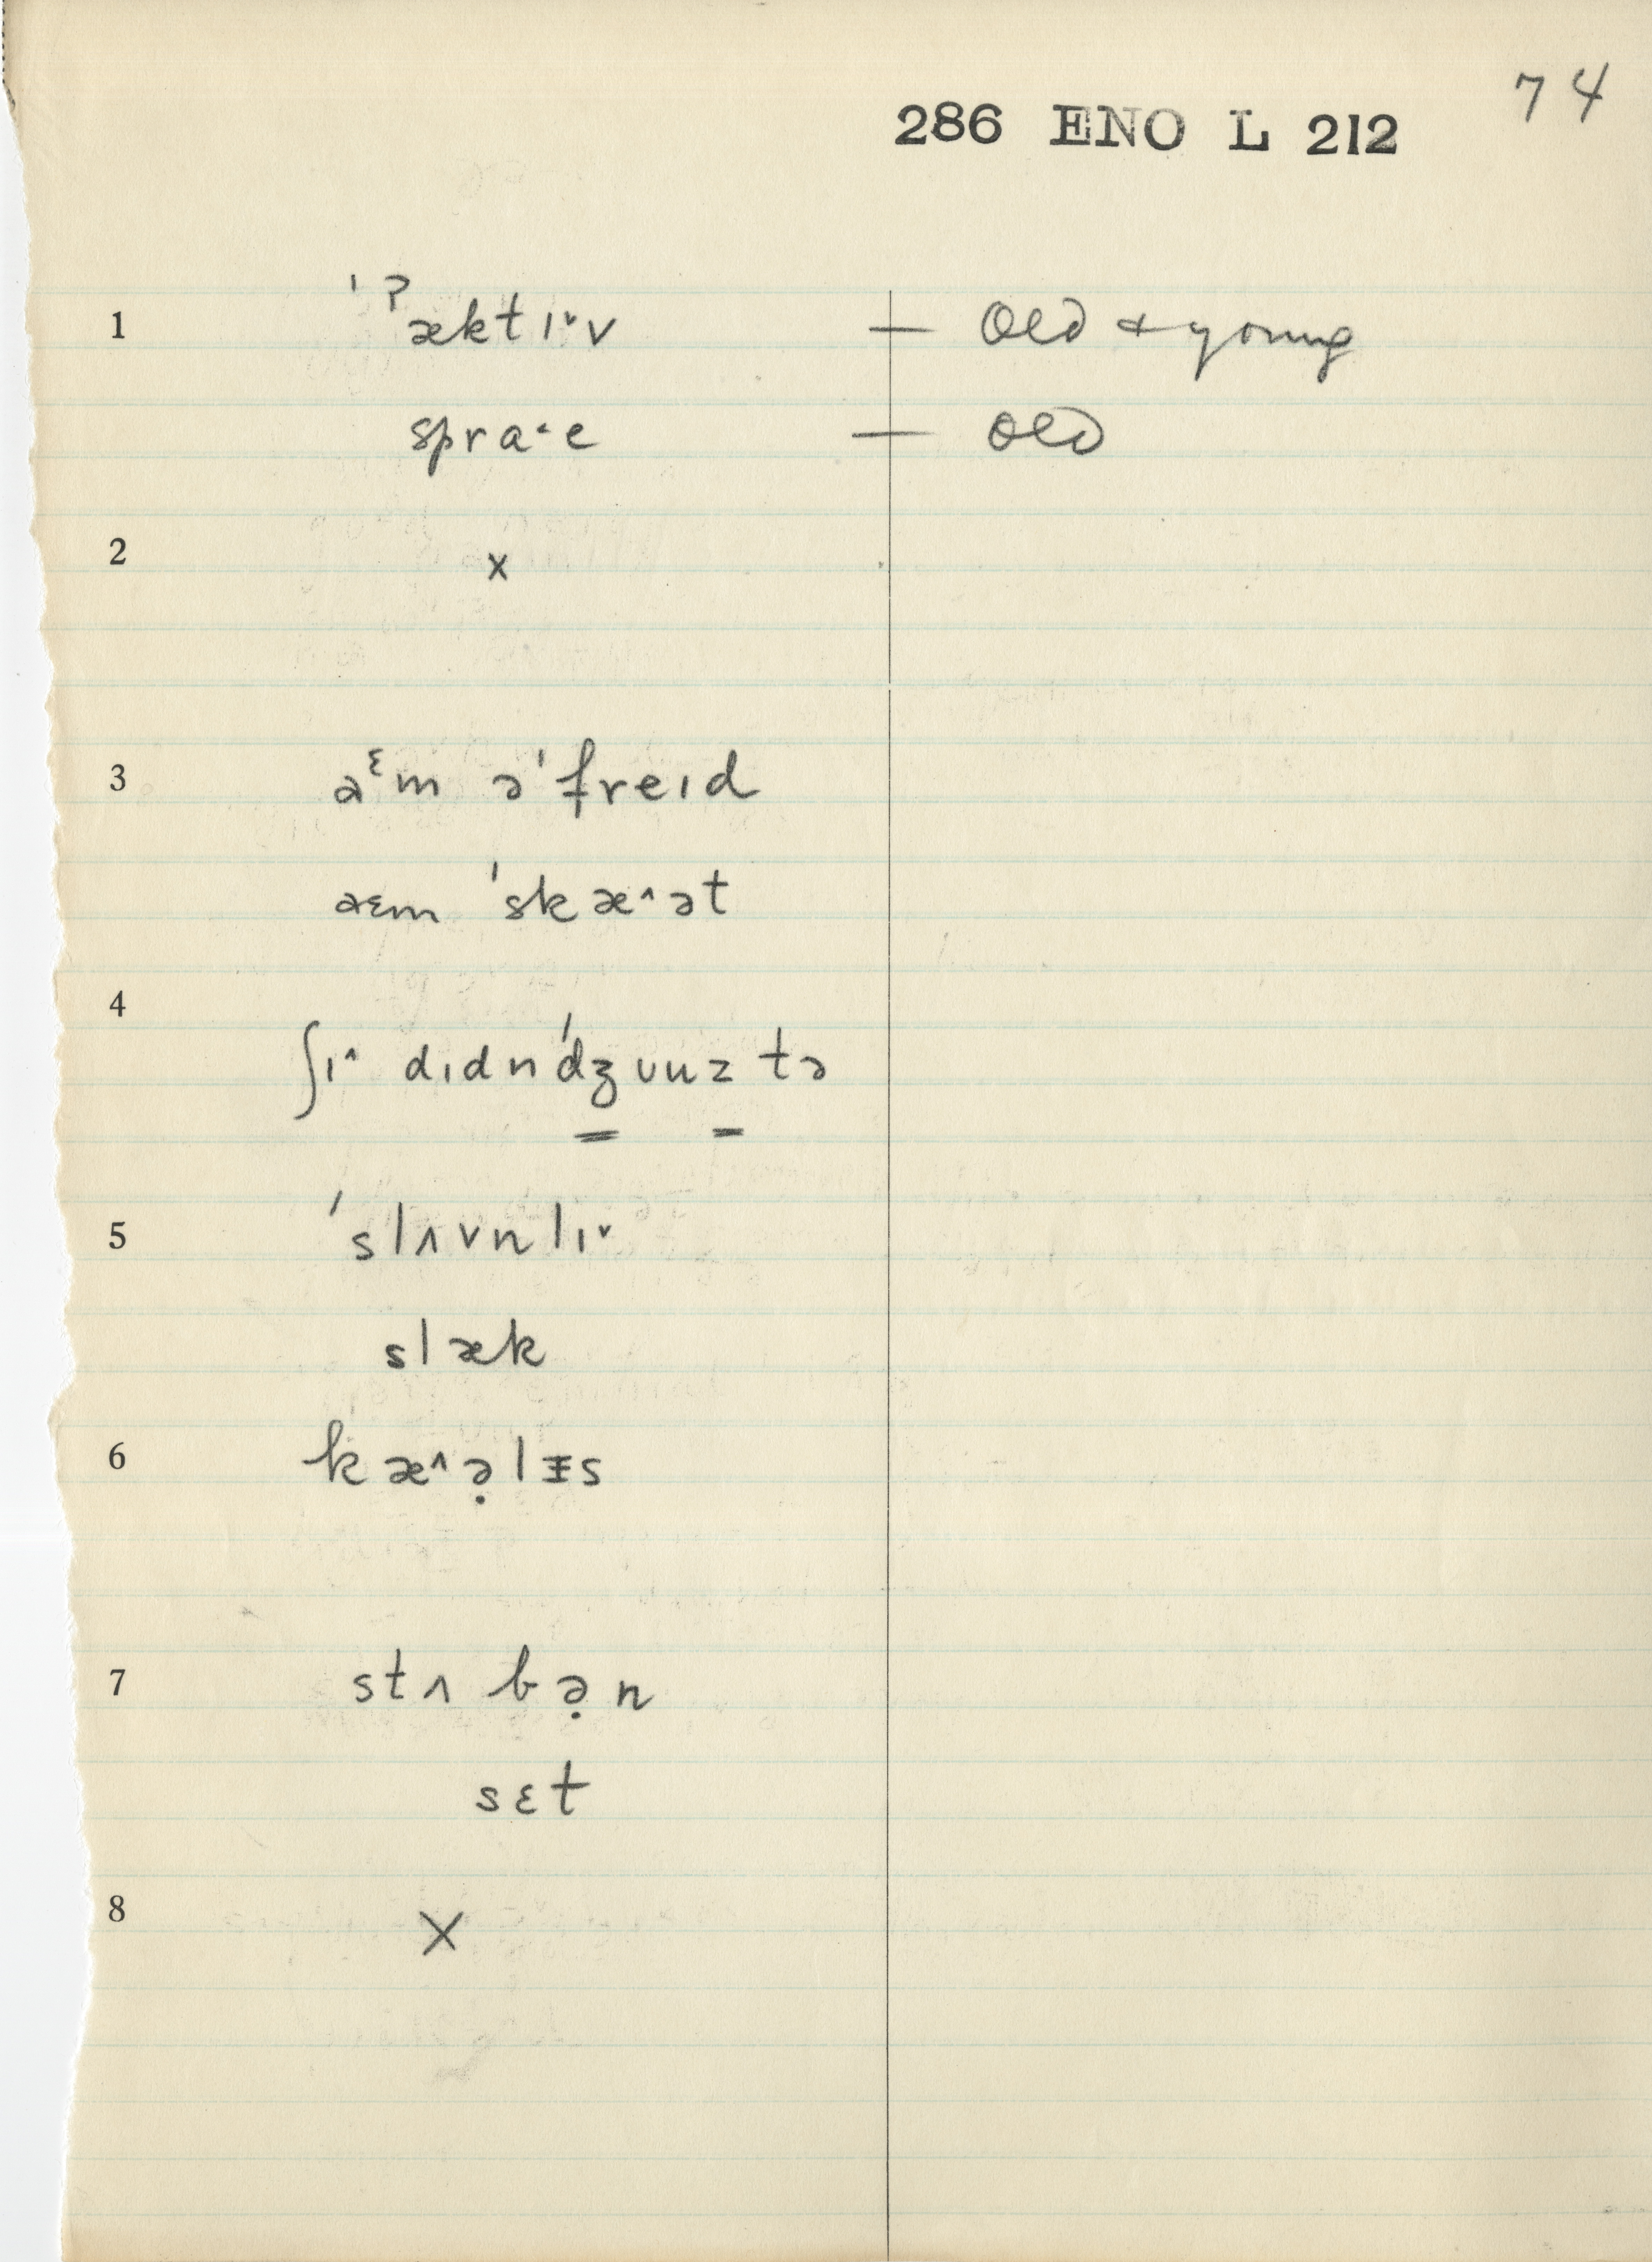 74
286 ENO L 212
1 ˈˀæktɪ˅v — Old & young
spra˂e — Old
2 x
3 aᵋm əˈfreɪd
aɛm ˈskæ˄ət
4 ʃɪ˄ dɪdnˈdʒuuz tə
5 ˈslʌvnlɪ˅
slæk
6 kæ˄ə̣lɪs
7 stʌbə̣n
sɛt
8 X